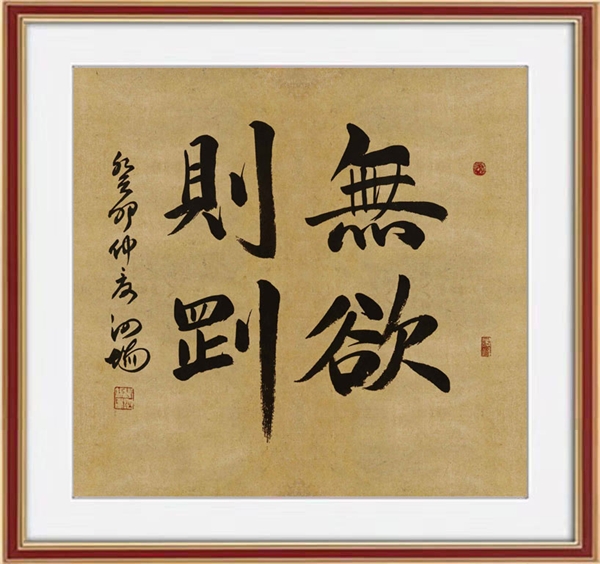 無欲
則剛
癸卯仲夏